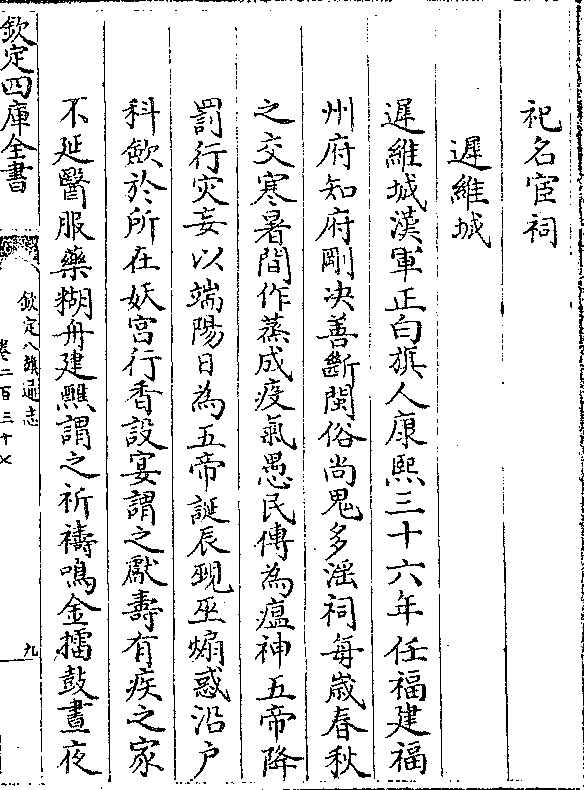 祀名宦祠
遲維城
遲維城漢軍正白旗人康熙三十六年任福建福
州府知府剛决善斷閩俗尚鬼多淫祠每歲春秋
之交寒暑間作蒸成疫氣愚民傳為瘟神五帝降
罰行灾妄以端陽日為五帝誕辰覡巫煽惑沿户
科歛於所在妖宫行香設宴謂之厭壽有疾之家
不延醫服藥糊舟建醮謂之祈禱鳴金擂鼓晝夜
欽定四庫全書
欽定八旗通志
卷二百三十七
九